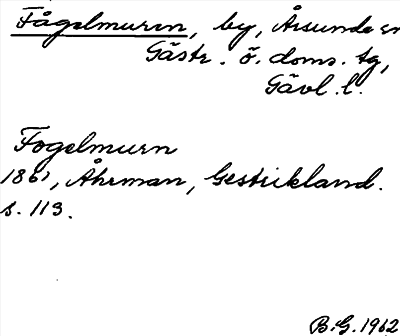 Fågelmuren, by, Årsunda sn
Gästr. ö. doms. tg,
Gävl. l.
Fogelmurn
1861, Åhrman, Gestrikland.
s. 113.
B.G. 1962